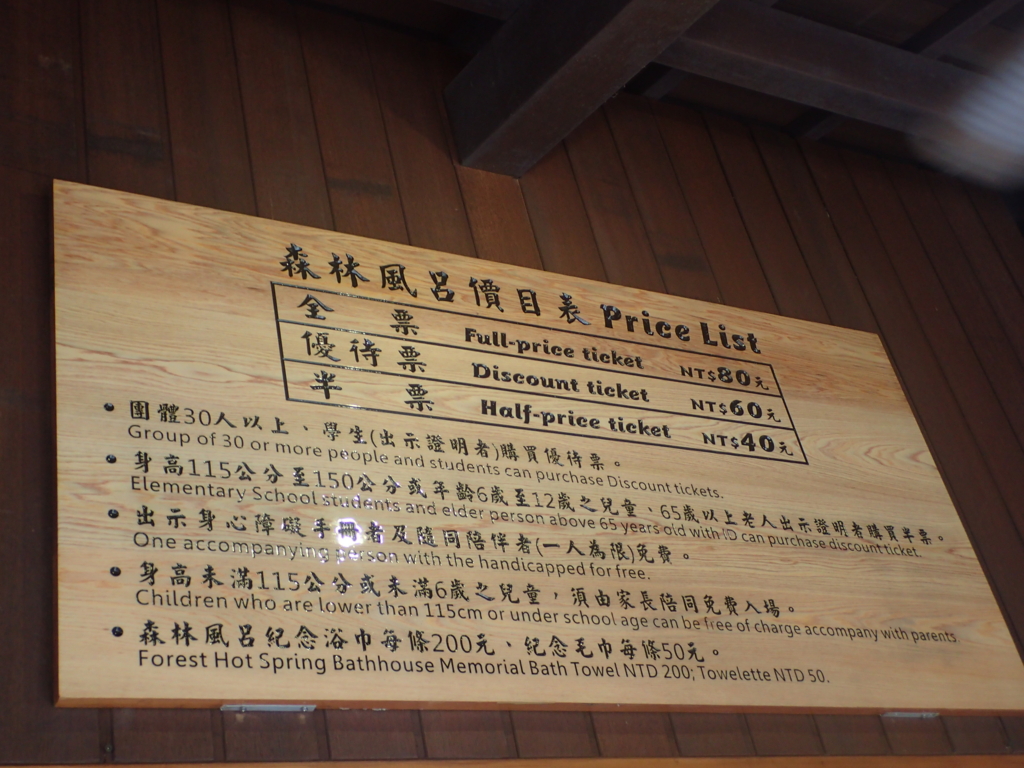 森林風呂價目表 Price List
全票 Full-price ticket NT$80元
優待票 Discount ticket NT$60元
半票 Half-price ticket NT$40元
• 團體30人以上、學生(出示證明者)購買優待票。
Group of 30 or more people and students can purchase Discount tickets.
• 身高115公分至150公分或年齡6歲至12歲之兒童、65歲以上老人出示證明者購買半票。
Elementary School students and elder person above 65 years old with ID can purchase discount ticket.
• 出示身心障礙手冊者及隨同陪伴者(一人為限)免費。
One accompanying person with the handicapped for free.
• 身高未滿115公分或未滿6歲之兒童，須由家長陪同免費入場。
Children who are lower than 115cm or under school age can be free of charge accompany with parents.
• 森林風呂紀念浴巾每條200元、紀念毛巾每條50元。
Forest Hot Spring Bathhouse Memorial Bath Towel NTD 200; Towelette NTD 50.